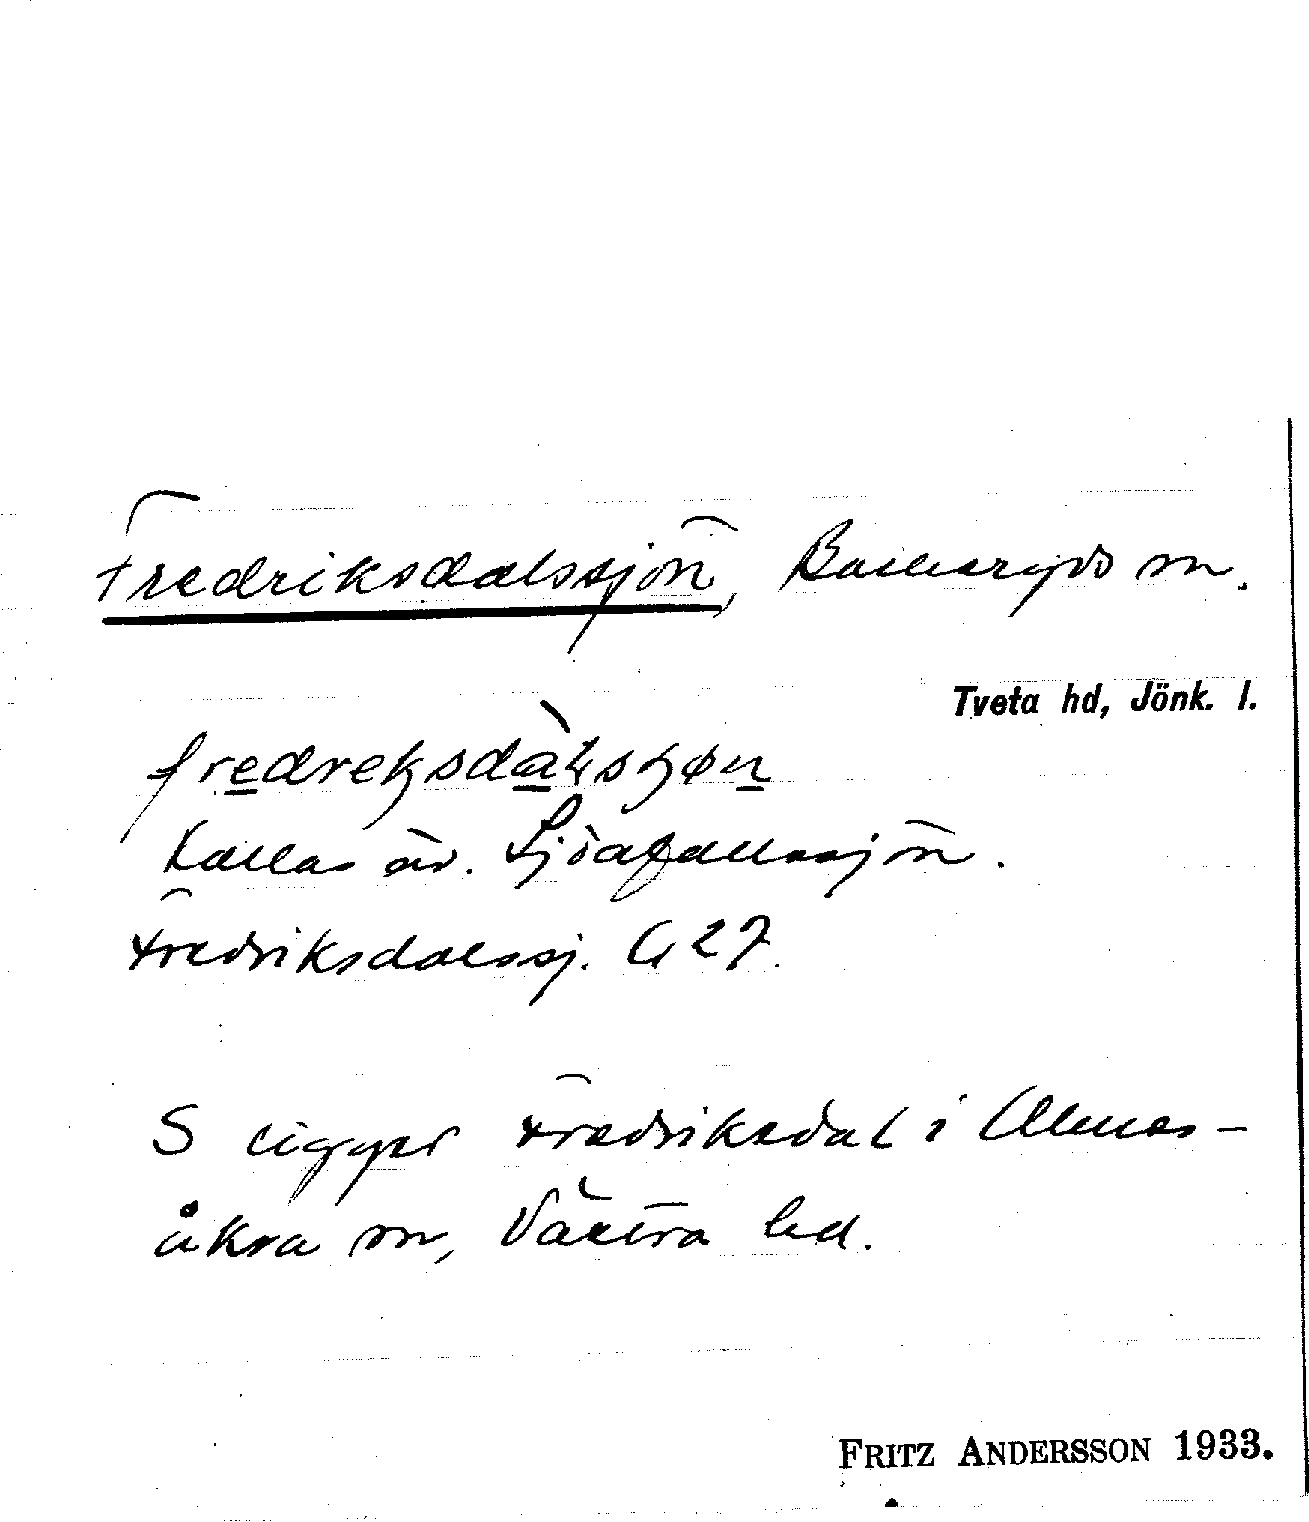 Fredriksdalssjön, Barkeryds sn.
Tveta hd, Jönk. l.
Kallas äv. Sjöafallssjön.
Fredriksdalssj. G 27.
S ligger Fredriksdal i Almes-
åkra sn, Västra hd.
FRITZ ANDERSSON 1933.